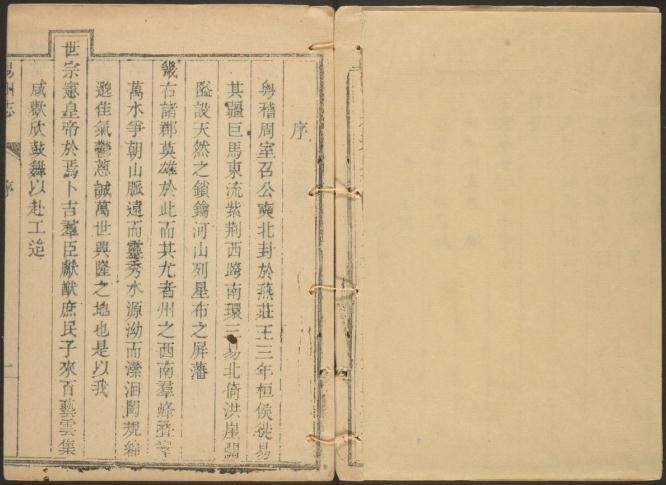 序
粵稽周室召公奭北封於燕莊王三年桓侯徙易
其疆巨馬東流紫荆西跨南環三易北倚洪崖關
隘設天然之鎖鑰河山列星布之屏藩
畿右諸郡莫雄於此而其尤者州之西南羣峰
萬水爭朝山脈遠而靈秀水源泑而瀠洄閎規
佳氣鬱蔥誠萬世興隆之地也是以我
世宗憲皇帝於焉卜吉羣臣獻猷庶民子來百藝雲集
咸歡欣鼓舞以赴工迨
州志
序
一